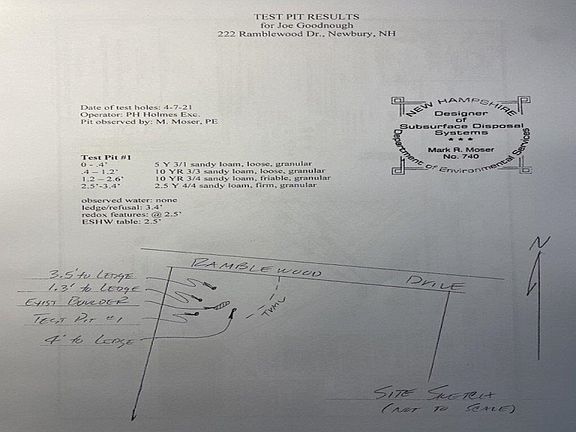 TEST PIT RESULTS
for Joe Goodnough
222 Ramblewood Dr., Newbury, NH
Date of test holes: 4-7-21
Operator: PH Holmes Exc.
Pit observed by: M. Moser, PE
NEW HAMPSHIRE
Designer
of
Subsurface Disposal
Systems
Mark R. Moser
No. 740
Department of Environmental Services
Test Pit #1
0 - .4' 5 Y 3/1 sandy loam, loose, granular
.4 – 1.2' 10 YR 3/3 sandy loam, loose, granular
1.2 – 2.6' 10 YR 3/4 sandy loam, friable, granular
2.5'-3.4' 2.5 Y 4/4 sandy loam, firm, granular
observed water: none
ledge/refusal: 3.4'
redox features: @ 2.5'
ESHW table: 2.5'
N
RAMBLEWOOD DRIVE
3.5' to LEDGE
1.3' to LEDGE
EXIST BOULDER
TEST PIT #1
4' to LEDGE
TRAIL
SITE SKETCH
(NOT TO SCALE)